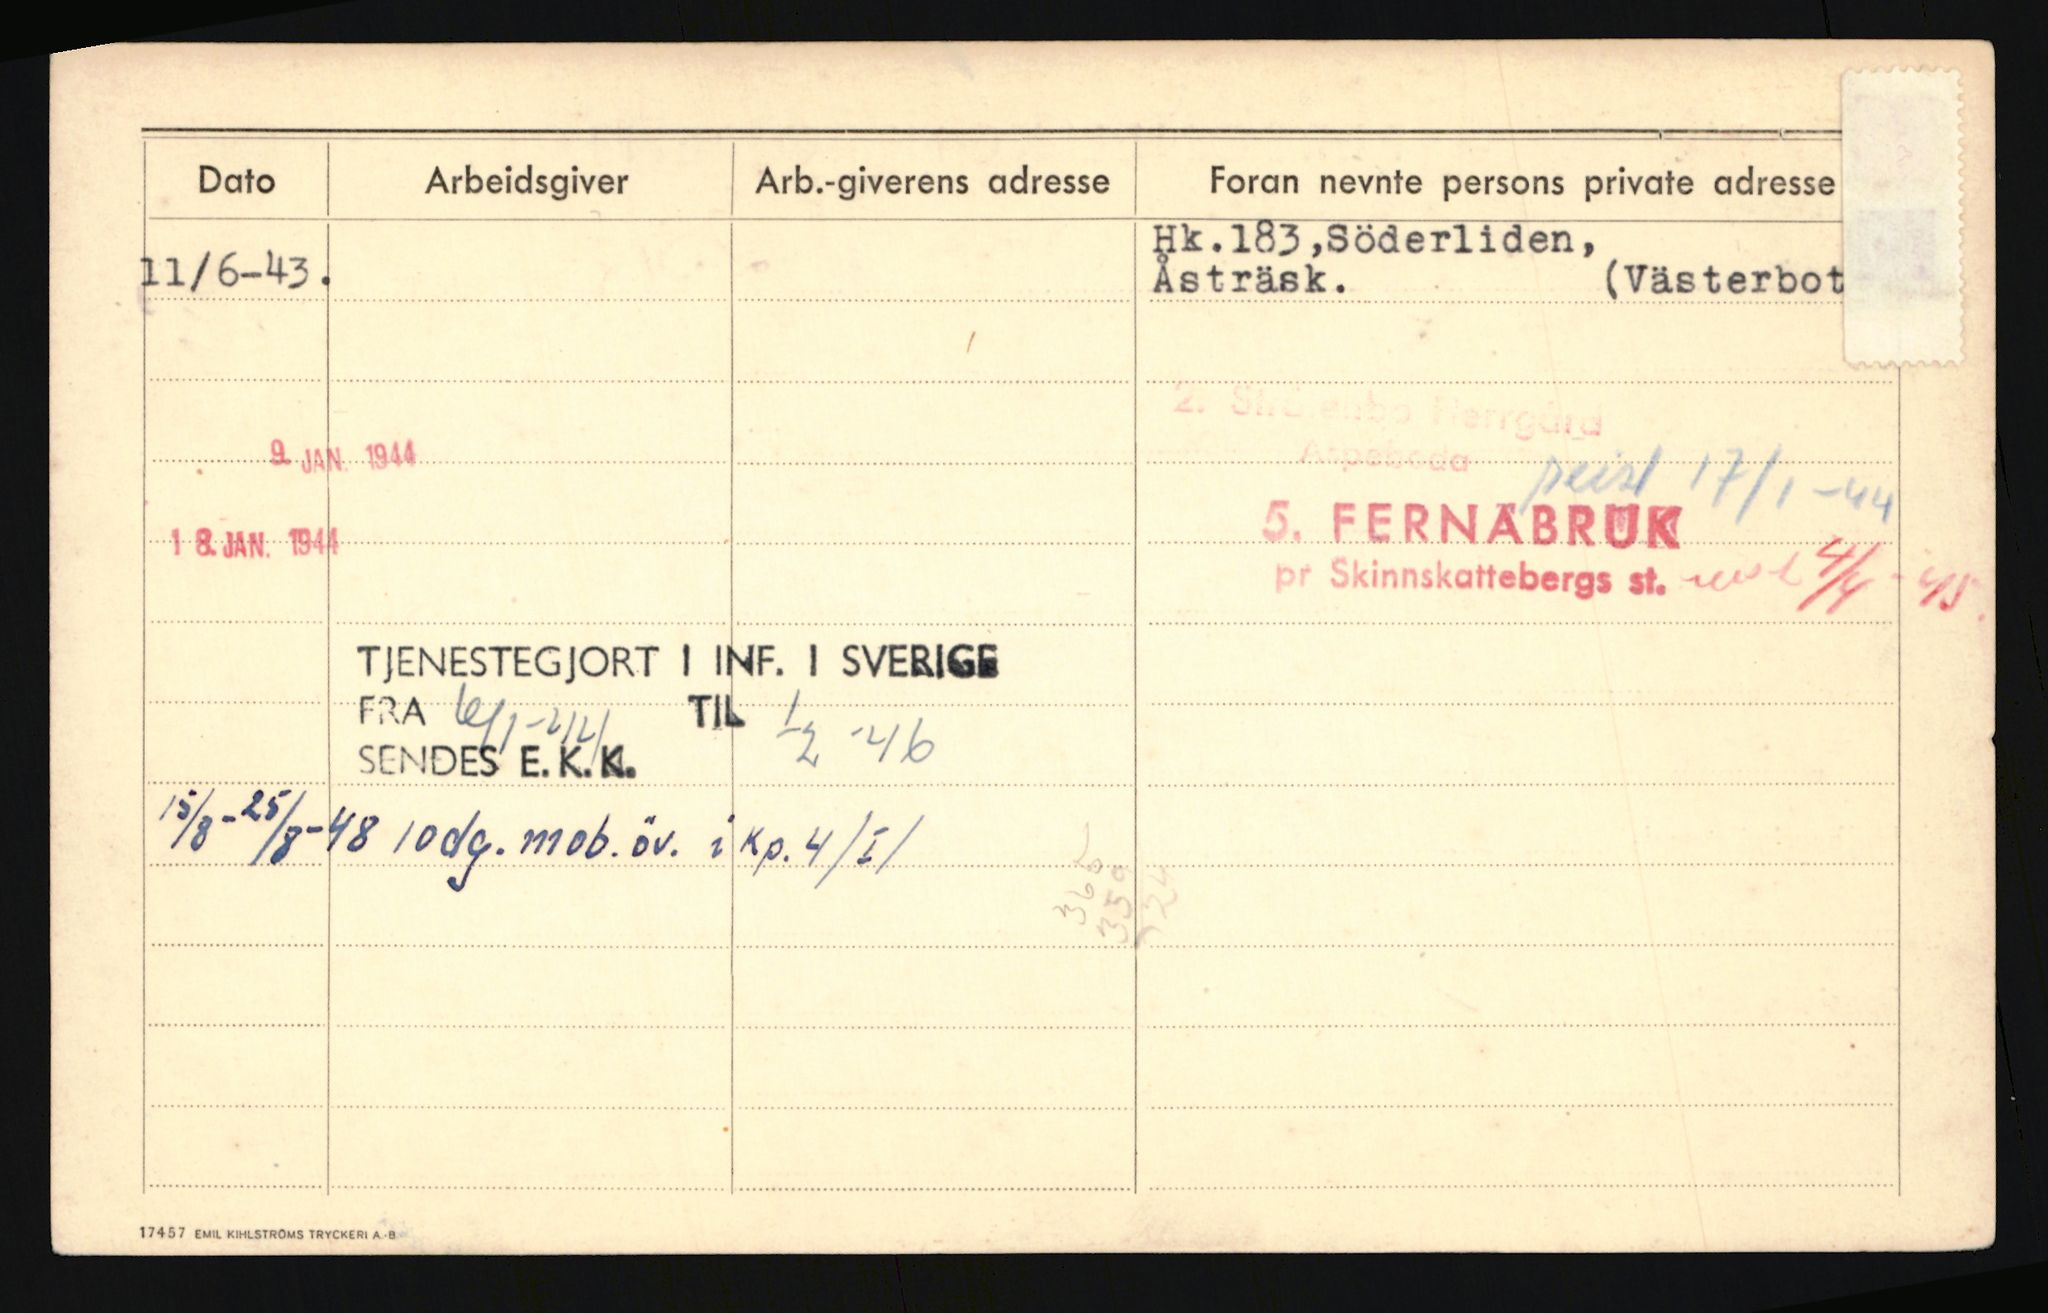 Dato Arbeidsgiver Arb.-giverens adresse Foran nevnte persons private adresse
Hk.183,Söderliden,
11/6-43. Åsträsk. (Västerbot
2. Herrgård
9. JAN. 1944
reist 17/1-44
18. JAN. 1944 5. FERNABRUK
pr Skinnskattebergs st. 4/4-45.
TJENESTEGJORT I INF. I SVERIGE
FRA TIL 1/2-46
SENDES E.K.K.
15/8-25/8-48 10dg. mob. öv. i Kp. 4/I/
359
17457 EMIL KIHLSTRÖMS TRYCKERI A.-B